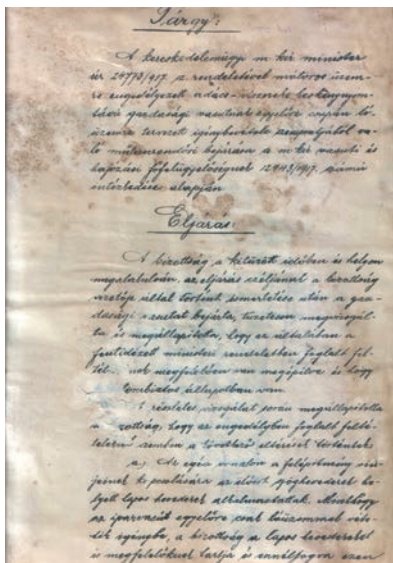 Tárgy:
A kereskedelemügyi m. kir. minister
úr 24778/917 sz. rendeletével motoros üzem-
re engedélyezett adács-visontai keskenynyom-
távú gazdasági vasútnak egyelőre csupán ló-
üzemre tervezett igénybevétele szempontjából va-
ló műtanrendőri bejárása a m. kir. vasúti és
hajózási főfelügyelőségnek 12443/1917 számú
intézkedése alapján
Eljárás:
A bizottság a kitűzött időben és helyen
megalakulván, az eljárás céljának a bizottság
vezetője által történt ismertetése után a gaz-
dasági vasutat bejárta, tüzetesen megvizsgál-
ta és megállapította, hogy az általában a
fentidézett ministeri rendeletben foglalt fel-
nek megfelelően van megépítve és hogy
üzembiztos állapotban van.
A részletes vizsgálat során megállapította
a bizottság, hogy az engedélyben foglalt felté-
telektől szemben a következő eltérések történtek:
a) Az egész vonalon a felépítmény sín-
jeinek kapcsolására az előírt szöghevederek he-
lyett lapos hevederek alkalmaztattak. Minthogy
az iparvasút egyelőre csak lóüzemmel véte-
tik igénybe, a bizottság a lapos hevedereket
is megfelelőknek tartja és ennélfogva ezen